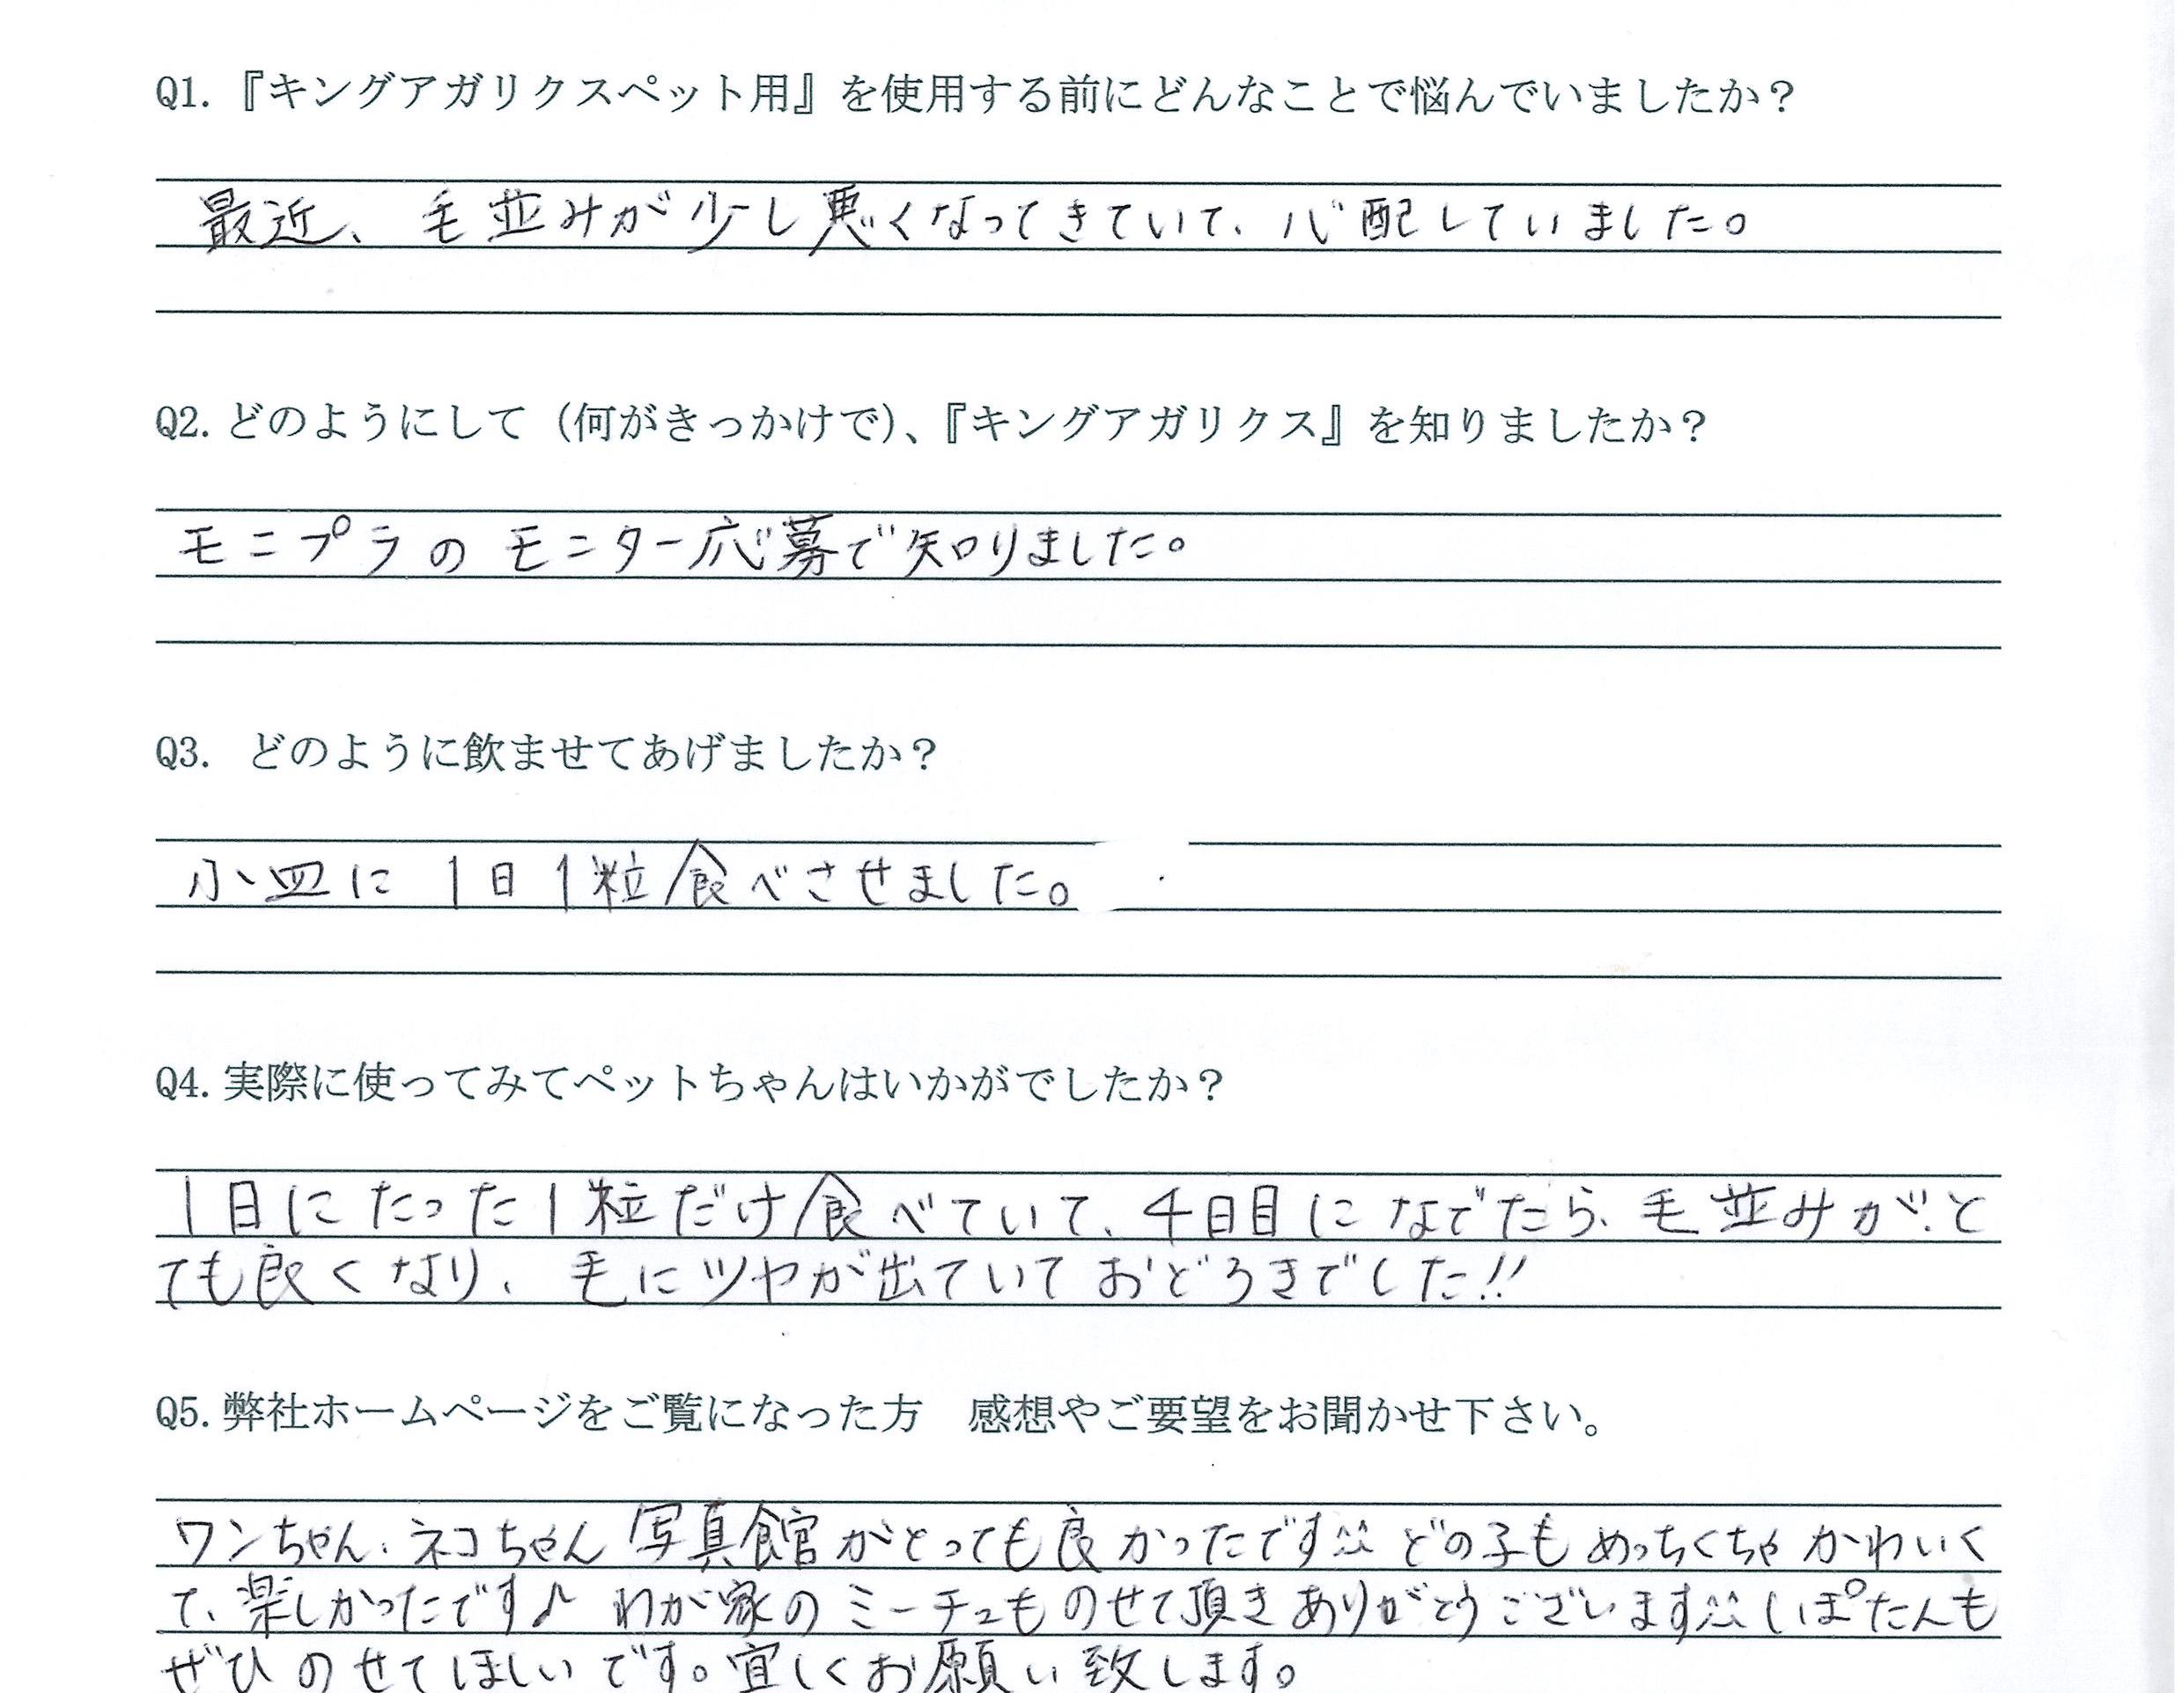 Q1.『キングアガリクスペット用』を使用する前にどんなことで悩んでいましたか？
最近、毛並みが少し悪くなってきていて、心配していました。
Q2. どのようにして（何がきっかけで）、『キングアガリクス』を知りましたか？
モニプラのモニター応募で知りました。
Q3. どのように飲ませてあげましたか？
小皿に1日1粒食べさせました。
Q4. 実際に使ってみてペットちゃんはいかがでしたか？
1日にたった1粒だけ食べていて、4日目になでたら、毛並みが、と
ても良くなり、毛にツヤが出ていておどろきでした!!
Q5. 弊社ホームページをご覧になった方　感想やご要望をお聞かせ下さい。
ワンちゃん、ネコちゃん写真館がとっても良かったです^^ どの子もめっちくちゃかわいく
て、楽しかったです♪ わが家のミーチュものせて頂きありがとうございます^^ しぽたんも
ぜひのせてほしいです。宜しくお願い致します。